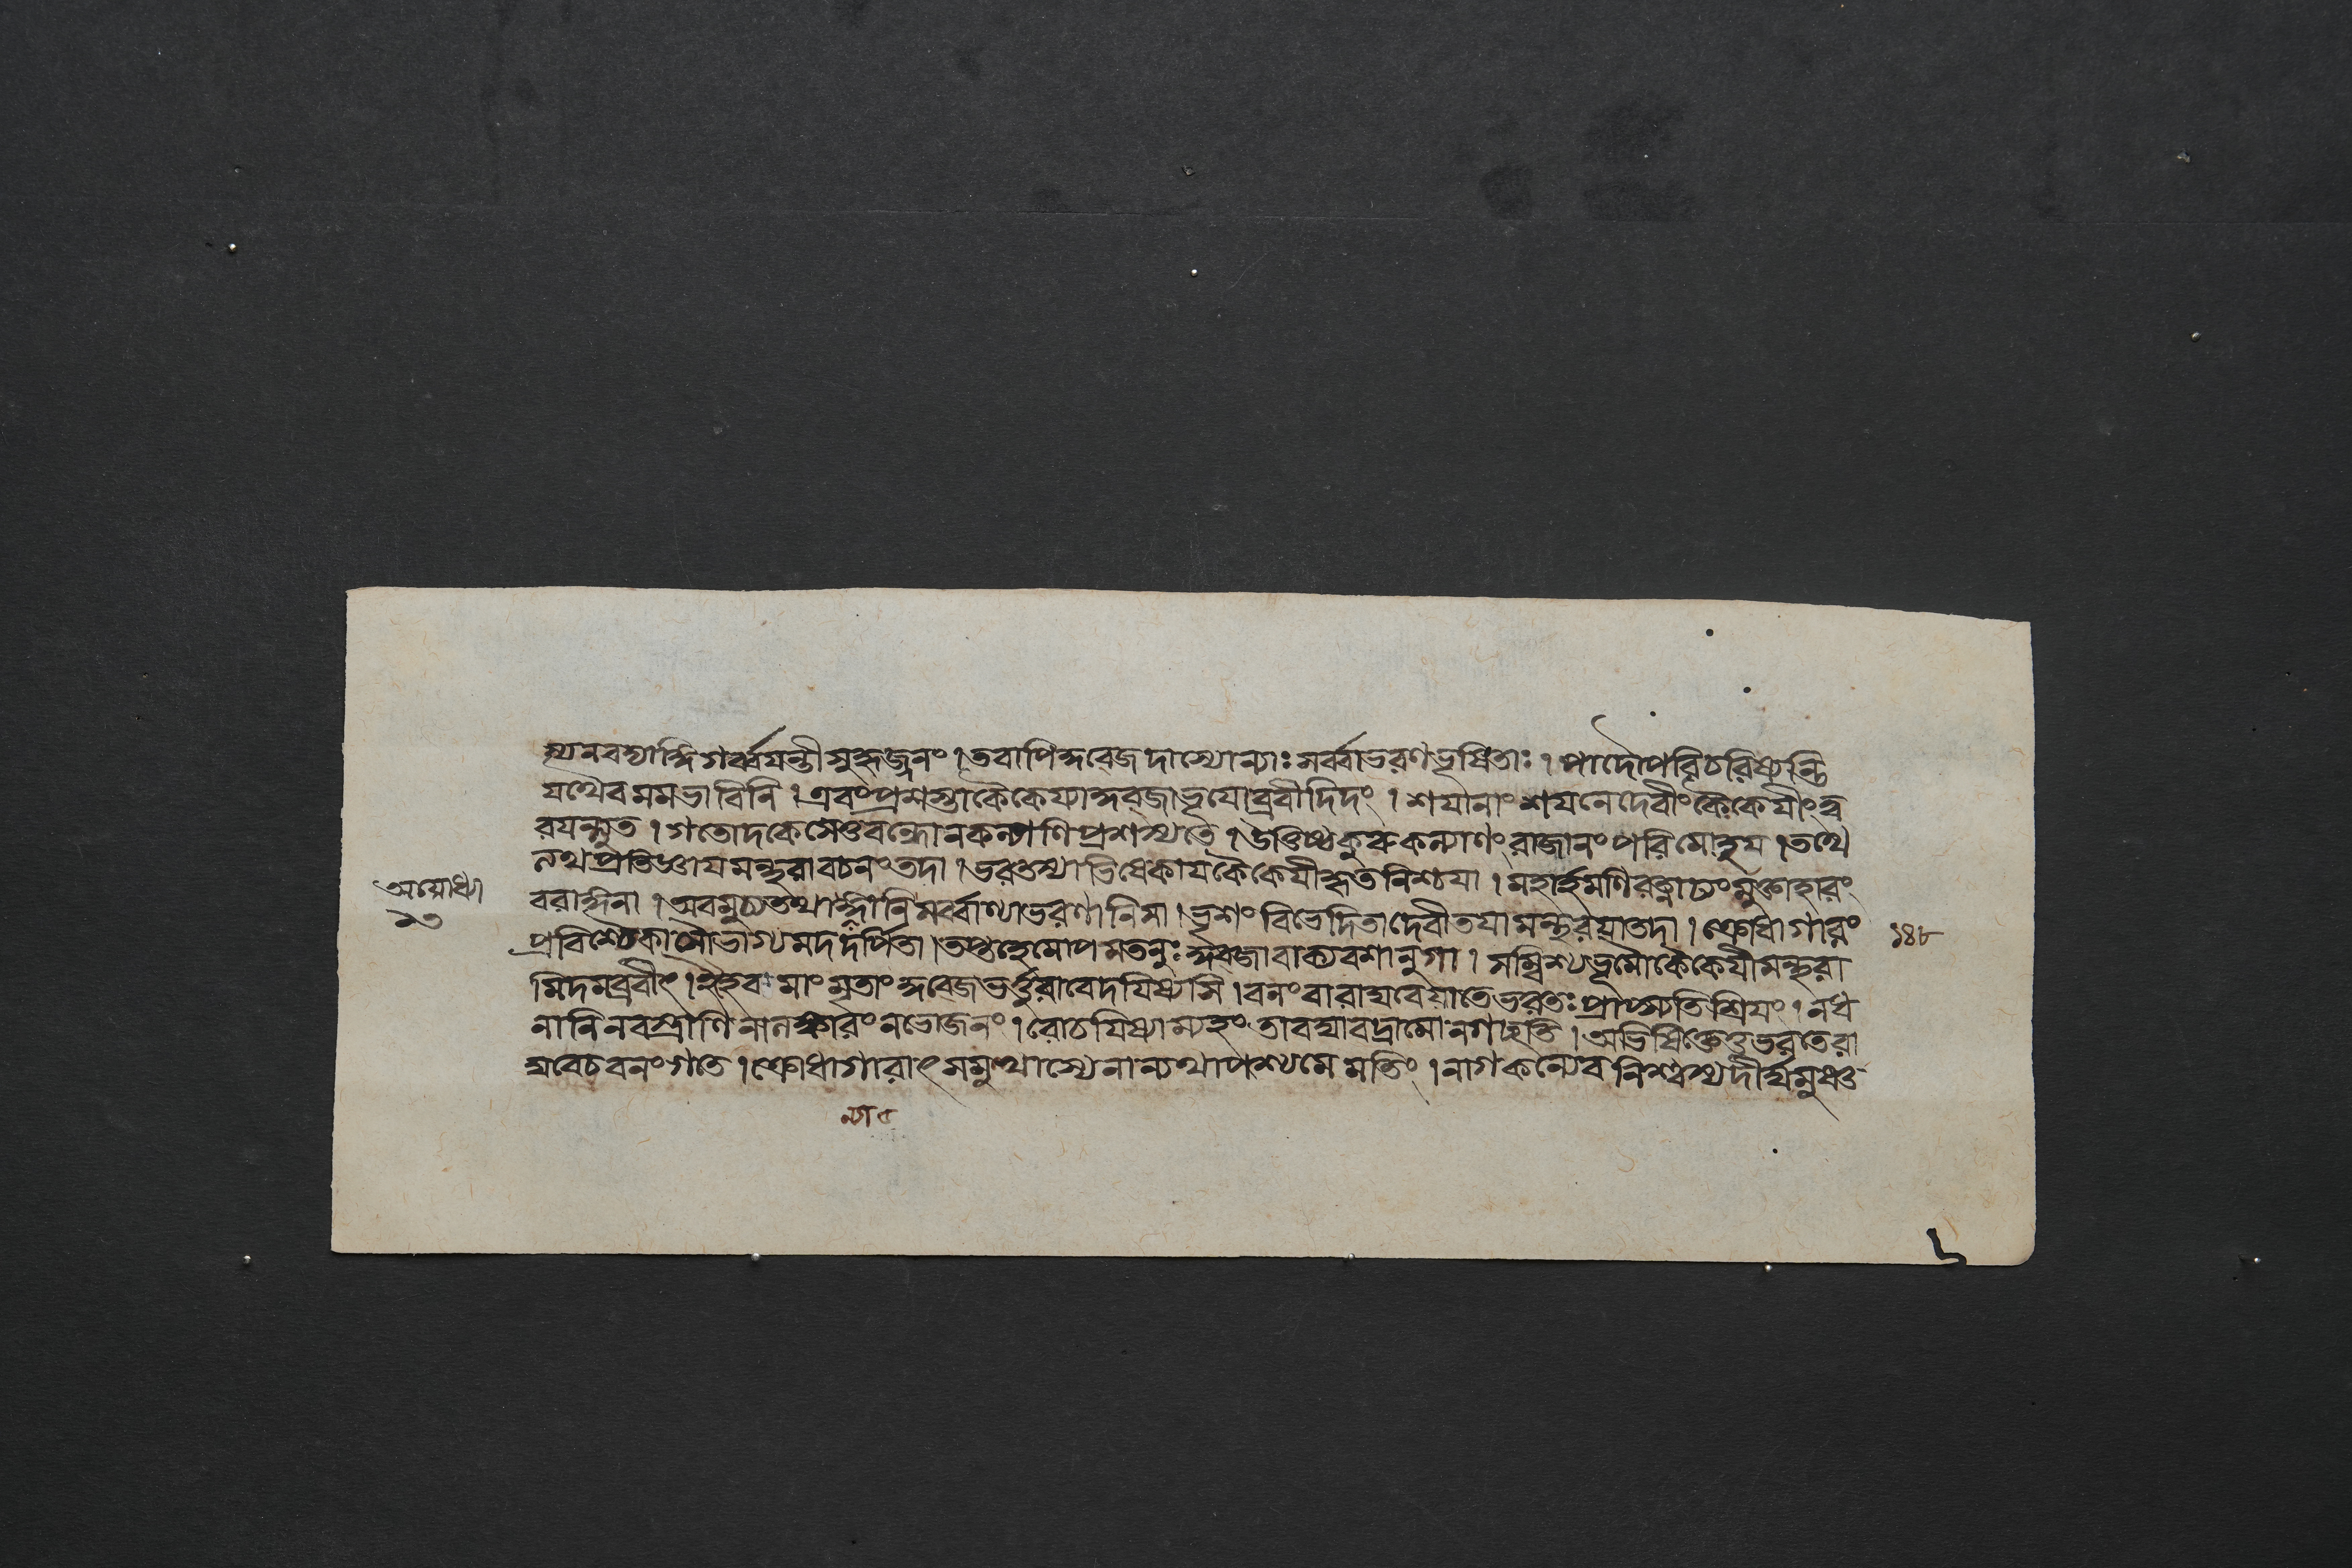 স্যনবদ্যাঙ্গি গর্ব্বযন্তী সুহৃজ্জনং । তবাপি কুব্জে দাস্যোন্যাঃ সর্ব্বাভরণভূষিতাঃ । পাদৌ পরিচরিষ্যন্তি
যথৈব মম ভাবিনি । এবং প্রশস্তা কৈকেয্যা কুব্জা ভূযোব্রবীদিদং । শযানাং শযনে দেবীং কৈকেযীং ত্ব
রযন্ত্যুত । গতোদকে সেতুবন্ধো ন কল্যাণি প্রশস্যতে । উত্তিষ্ঠ কুরু কল্যাণং রাজানং পরিমোহয । তথে
ত্যথ প্রতিগৃহ্য মন্থরাবচনং তদা । ভরতস্যাভিষেকায কৈকেযী কৃতনিশ্চযা । মহার্হমণিরত্নাঢ্যং মুক্তাহারং
বরাঙ্গনা । অবমুচ্য তথাঙ্গানি সর্ব্বাণ্যাভরণানি সা । ভৃশং বিভেদিতা দেবী তযা মন্থরযা তদা । ক্রোধাগারং
প্রবিশ্যৈকা সৌভাগ্যমদদর্পিতা । তপ্তহেমোপমতনুঃ কুব্জাবাক্যবশানুগা । সম্বিশ্য ভূমৌ কৈকেযী মন্থরা
মিদমব্রবীৎ । ইহৈব মাং মৃতাং কুব্জে ভর্ত্তুরাবেদযিষ্যসি । বনং বা রাঘবে যাতে ভরতঃ প্রাপ্স্যতি শ্রিযং । ন ধ
নানি ন বস্ত্রাণি নালঙ্কারং ন ভোজনং । রোচযিষ্যাম্যহং তাবদ্যাবদ্রামো ন গচ্ছতি । অভিষিক্তে তু ভরতে রা
ঘবে চ বনং গতে । ক্রোধাগারাৎ সমুত্থাস্যে নান্যথা পশ্য মে মতিং । নাগকন্যেব নিশ্বস্য দীর্ঘমুষ্ণ
অযোধ্যা
১৩
১৪৮